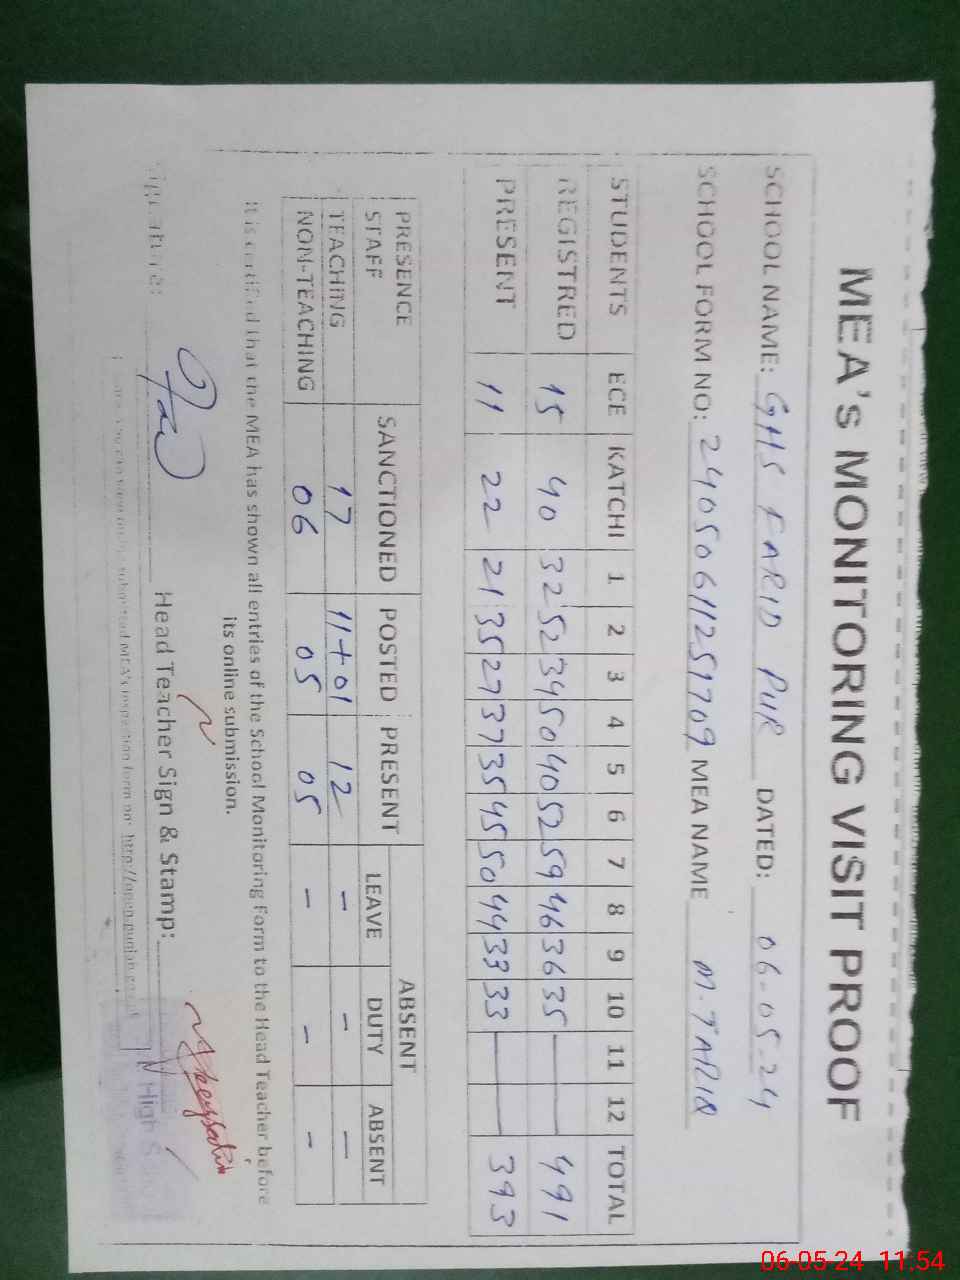 MEA's MONITORING VISIT PROOF
SCHOOL NAME: GHS FARID PUR DATED: 06-05-24
SCHOOL FORM NO: 24050611251709 MEA NAME M. TARIQ
STUDENTS ECE KATCHI 1 2 3 4 5 6 7 8 9 10 11 12 TOTAL
REGISTRED 15 40 32 52 34 50 40 52 59 46 36 35 — — 491
PRESENT 11 22 21 35 27 37 35 45 50 44 33 33 — — 393
PRESENCE STAFF SANCTIONED POSTED PRESENT ABSENT
LEAVE DUTY ABSENT
TEACHING 17 11+01 12 - - -
NON-TEACHING 06 05 05 - - -
It is certified that the MEA has shown all entries of the School Monitoring Form to the Head Teacher before
its online submission.
Signature: Head Teacher Sign & Stamp:
submitted MEA's inspection form on: http://open.punjab.gov.pk
High
06-05-24 11:54